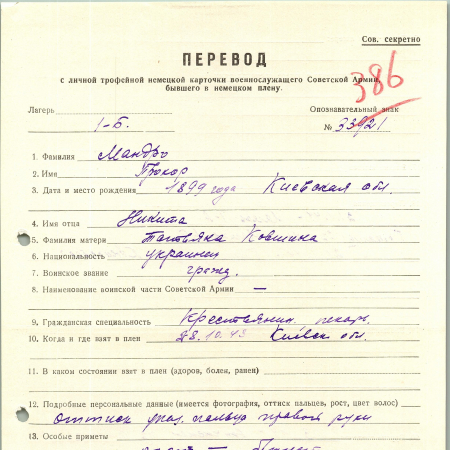 Сов. секретно
ПЕРЕВОД
с личной трофейной немецкой карточки военнослужащего Советской Армии,
бывшего в немецком плену.
386
Лагерь
Опознавательный знак
1-Б.
№ 33921
1. Фамилия Мандро
2. Имя
3. Дата и место рождения 1899 года Киевская обл.
4. Имя отца Никита
5. Фамилия матери Татьяна Ковшина
6. Национальность украинец
7. Воинское звание гражд.
8. Наименование воинской части Советской Армии —
9. Гражданская специальность Крестьянин, пекарь.
10. Когда и где взят в плен 28.10.43 Киевск. обл.
11. В каком состоянии взят в плен (здоров, болен, ранен)
12. Подробные персональные данные (имеется фотография, оттиск пальцев, рост, цвет волос)
оттиск указ. пальца правой руки
13. Особые приметы